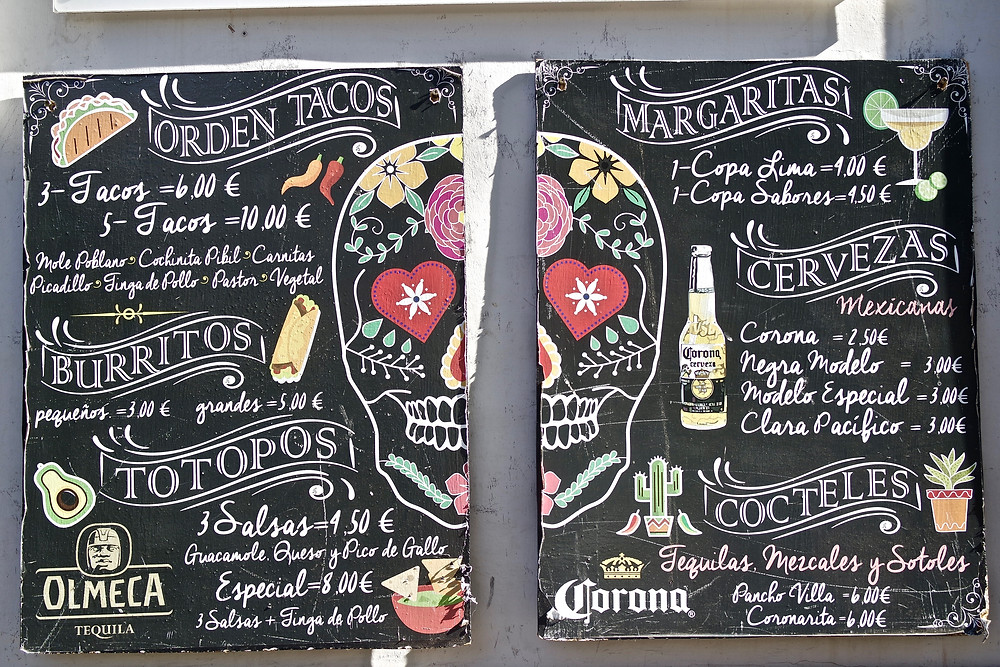 ORDEN TACOS
3-Tacos =6,00 €
5-Tacos =10,00 €
Mole Poblano Cochinita Pibil Carnitas
Picadillo Tinga de Pollo Pastor Vegetal
BURRITOS
pequeños =3,00 € grandes =5,00 €
TOTOPOS
3 Salsas=4,50 €
Guacamole, Queso y Pico de Gallo
Especial=8,00€
3 Salsas + Tinga de Pollo
OLMECA
TEQUILA
MARGARITAS
1-Copa Lima =4,00 €
1-Copa Sabores=4,50€
CERVEZAS
Mexicanas
Corona = 2,50€
Negra Modelo = 3,00€
Modelo Especial =3,00€
Clara Pacífico = 3,00€
Corona
cerveza
COCTELES
Tequilas, Mezcales y Sotoles
Pancho Villa =6,00€
Coronarita =6,00€
Corona®